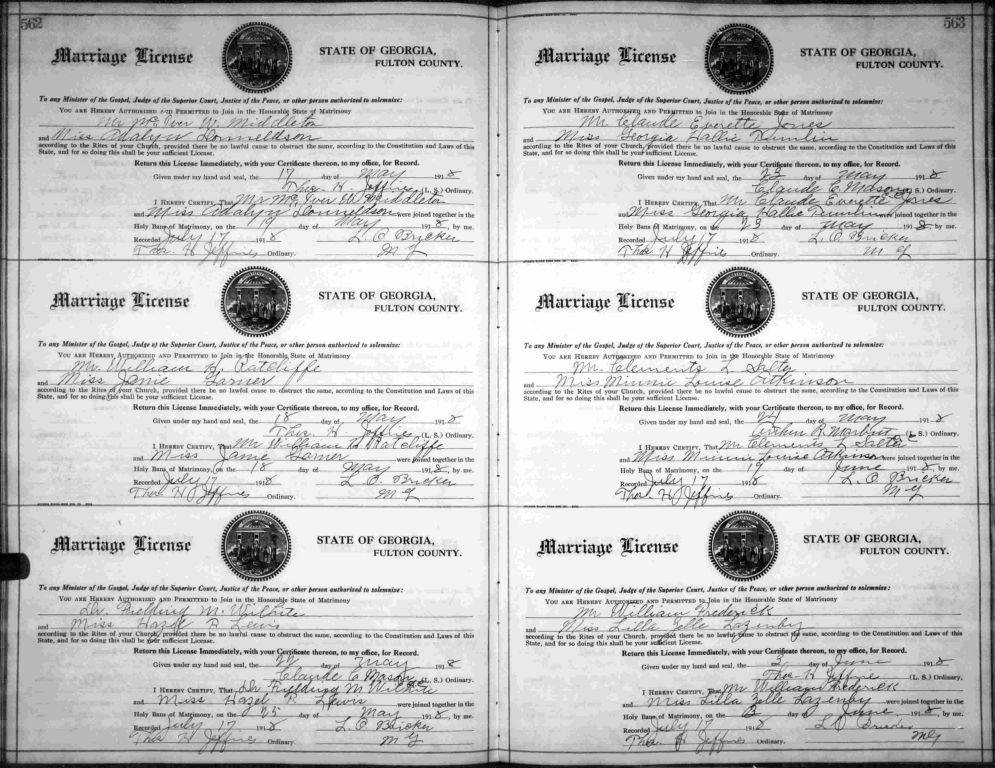 562
Marriage License
STATE OF GEORGIA,
FULTON COUNTY.
To any Minister of the Gospel, Judge of the Superior Court, Justice of the Peace, or other person authorized to solemnize:
YOU ARE HEREBY AUTHORIZED AND PERMITTED to Join in the Honorable State of Matrimony
Mr Mc Iver W. Middleton
and Miss Adalyn Donneldson
according to the Rites of your Church, provided there be no lawful cause to obstruct the same, according to the Constitution and Laws of this
State, and for so doing this shall be your sufficient License.
Return this License Immediately, with your Certificate thereon, to my office, for Record.
Given under my hand and seal, the 17 day of May 1918
Thos. H. Jeffries (L. S.) Ordinary.
I HEREBY CERTIFY, That Mr Mc Iver W. Middleton
and Miss Adalyn Donneldson were joined together in the
Holy Bans of Matrimony, on the 19 day of May 1918, by me.
Recorded July 17 1918 L. O. Bricker
Thos H Jeffries Ordinary. M G
Marriage License
STATE OF GEORGIA,
FULTON COUNTY.
To any Minister of the Gospel, Judge of the Superior Court, Justice of the Peace, or other person authorized to solemnize:
YOU ARE HEREBY AUTHORIZED AND PERMITTED to Join in the Honorable State of Matrimony
Mr. William H. Ratcliffe
and Miss Janie Garner
according to the Rites of your Church, provided there be no lawful cause to obstruct the same, according to the Constitution and Laws of this
State, and for so doing this shall be your sufficient License.
Return this License Immediately, with your Certificate thereon, to my office, for Record.
Given under my hand and seal, the 18 day of May 1918
Thos. H. Jeffries (L. S.) Ordinary.
I HEREBY CERTIFY, That Mr William H Ratcliffe
and Miss Janie Garner were joined together in the
Holy Bans of Matrimony, on the 18 day of May 1918, by me.
Recorded July 17 1918 L. O. Bricker
Thos H Jeffries Ordinary. M G
Marriage License
STATE OF GEORGIA,
FULTON COUNTY.
To any Minister of the Gospel, Judge of the Superior Court, Justice of the Peace, or other person authorized to solemnize:
YOU ARE HEREBY AUTHORIZED AND PERMITTED to Join in the Honorable State of Matrimony
Dr. Fielding M. Wilhite
and Miss Hazel P. Lewis
according to the Rites of your Church, provided there be no lawful cause to obstruct the same, according to the Constitution and Laws of this
State, and for so doing this shall be your sufficient License.
Return this License Immediately, with your Certificate thereon, to my office, for Record.
Given under my hand and seal, the 22 day of May 1918
Claude C Mason (L. S.) Ordinary.
I HEREBY CERTIFY, That Dr Fielding M. Wilhite
and Miss Hazel P. Lewis were joined together in the
Holy Bans of Matrimony, on the 25 day of May 1918, by me.
Recorded July 17 1918 L. O. Bricker
Thos H Jeffries Ordinary. M G
563
Marriage License
STATE OF GEORGIA,
FULTON COUNTY.
To any Minister of the Gospel, Judge of the Superior Court, Justice of the Peace, or other person authorized to solemnize:
YOU ARE HEREBY AUTHORIZED AND PERMITTED to Join in the Honorable State of Matrimony
Mr. Claude Everette Jones
and Miss Georgia Hallie
according to the Rites of your Church, provided there be no lawful cause to obstruct the same, according to the Constitution and Laws of this
State, and for so doing this shall be your sufficient License.
Return this License Immediately, with your Certificate thereon, to my office, for Record.
Given under my hand and seal, the 23 day of May 1918
Claude C. Mason (L. S.) Ordinary.
I HEREBY CERTIFY, That Mr Claude Everette Jones
and Miss Georgia Hallie were joined together in the
Holy Bans of Matrimony, on the 23 day of May 1918, by me.
Recorded July 17 1918 L. O. Bricker
Thos. H Jeffries Ordinary. M G
Marriage License
STATE OF GEORGIA,
FULTON COUNTY.
To any Minister of the Gospel, Judge of the Superior Court, Justice of the Peace, or other person authorized to solemnize:
YOU ARE HEREBY AUTHORIZED AND PERMITTED to Join in the Honorable State of Matrimony
Mr. Clements L
and Miss Minnie Louise Atkinson
according to the Rites of your Church, provided there be no lawful cause to obstruct the same, according to the Constitution and Laws of this
State, and for so doing this shall be your sufficient License.
Return this License Immediately, with your Certificate thereon, to my office, for Record.
Given under my hand and seal, the 24 day of May 1918
Arthur R. Marbut (L. S.) Ordinary.
I HEREBY CERTIFY, That Mr. Clements L
and Miss Minnie Louise Atkinson were joined together in the
Holy Bans of Matrimony, on the 19 day of June 1918, by me.
Recorded July 17 1918 L. O. Bricker
Thos H Jeffries Ordinary. M G
Marriage License
STATE OF GEORGIA,
FULTON COUNTY.
To any Minister of the Gospel, Judge of the Superior Court, Justice of the Peace, or other person authorized to solemnize:
YOU ARE HEREBY AUTHORIZED AND PERMITTED to Join in the Honorable State of Matrimony
Mr William Frederick
and Miss Lilla Zelle Lazenby
according to the Rites of your Church, provided there be no lawful cause to obstruct the same, according to the Constitution and Laws of this
State, and for so doing this shall be your sufficient License.
Return this License Immediately, with your Certificate thereon, to my office, for Record.
Given under my hand and seal, the 3 day of June 1918
Thos H Jeffries (L. S.) Ordinary.
I HEREBY CERTIFY, That Mr William Frederick
and Miss Lilla Zelle Lazenby were joined together in the
Holy Bans of Matrimony, on the 3 day of June 1918, by me.
Recorded July 17 1918 L O Bricker
Thos. H Jeffries Ordinary. MG